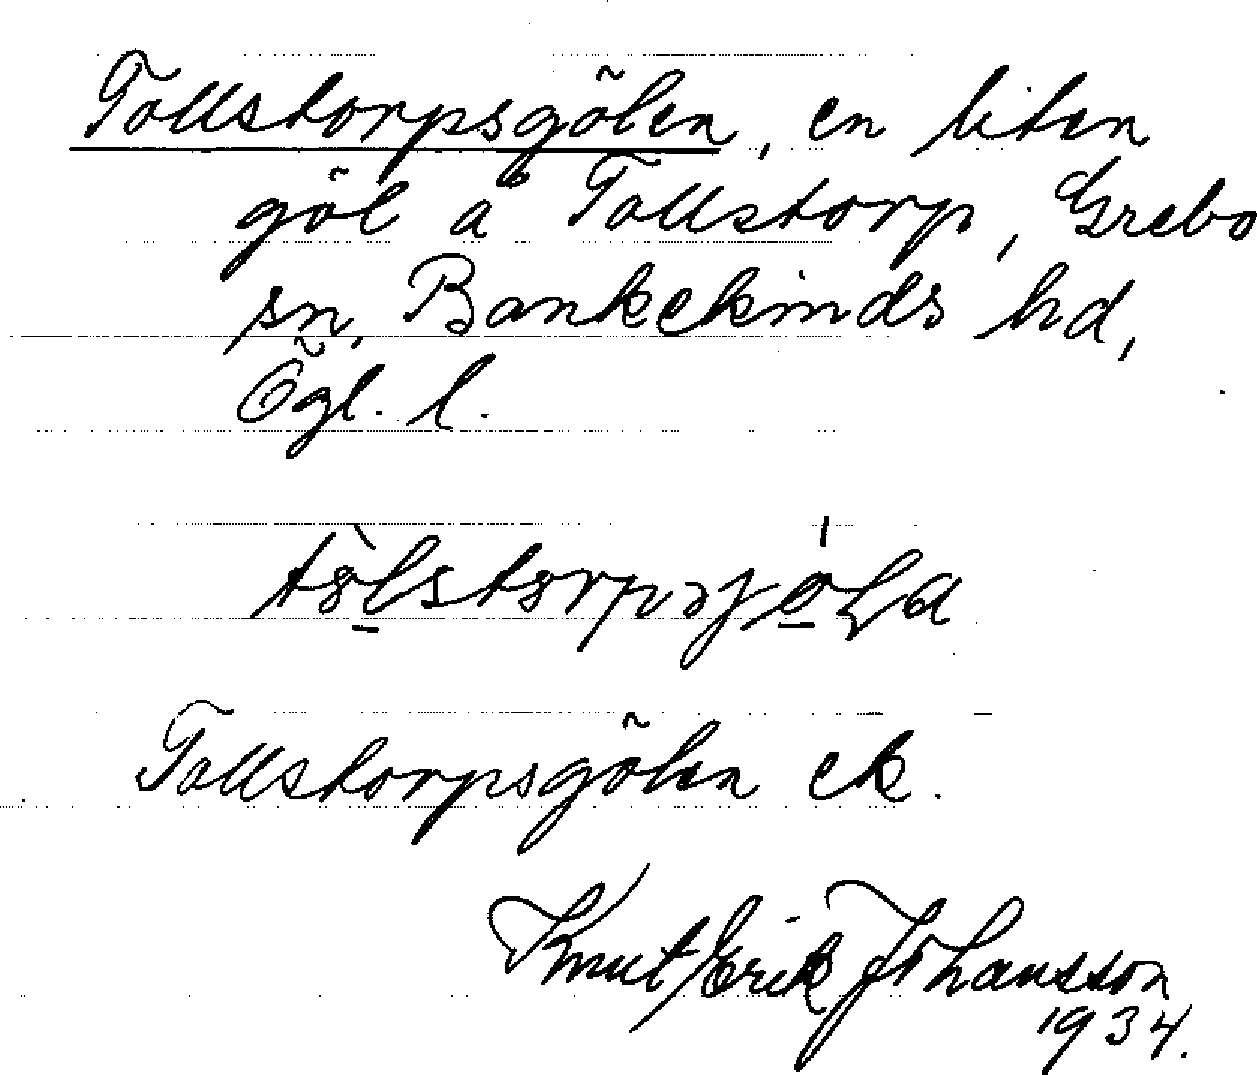 Tollstorpsgölen, en liten
göl å Tollstorp, Grebo
sn, Bankekinds hd,
Ögl. l.
Tollstorpsgölen ek.
Knut Erik Johansson
1934.